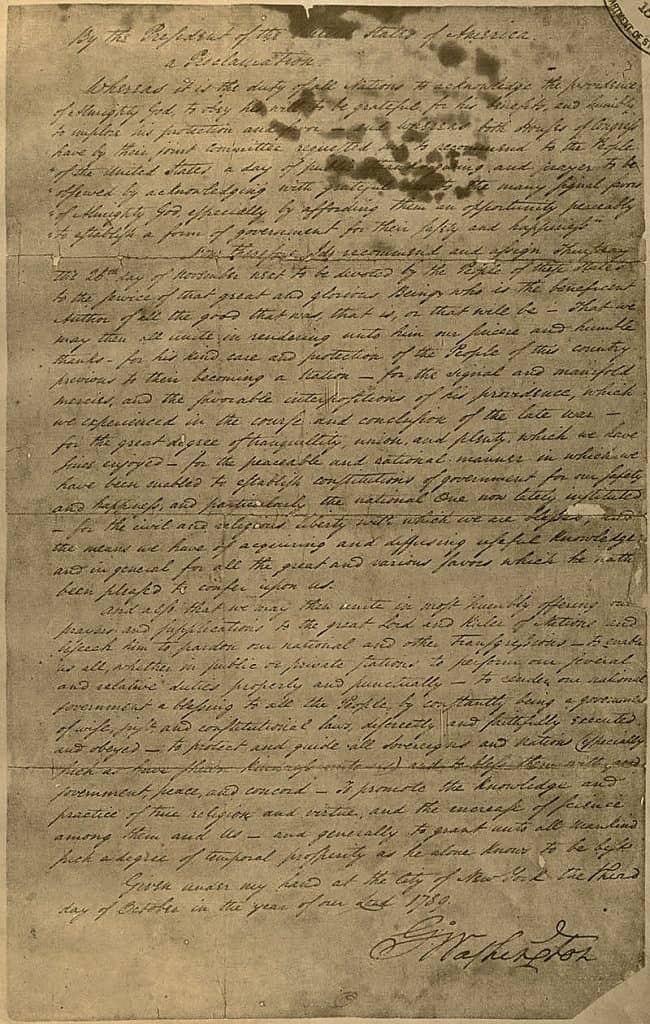 By the President of the United States of America.
a Proclamation.
Whereas it is the duty of all Nations to acknowledge the providence
of Almighty God, to obey his will, to be grateful for his benefits, and humbly
to implore his protection and favor — and whereas both Houses of Congress
have by their joint Committee requested me to recommend to the People
of the United States a day of public thanksgiving and prayer to be
offered by acknowledging with grateful hearts the many signal favors
of Almighty God especially by affording them an opportunity peaceably
to establish a form of government for their safety and happiness
Now therefore I do recommend and assign Thursday
the 26th day of November next to be devoted by the People of these States
to the service of that great and glorious Being, who is the beneficent
Author of all the good that was, that is, or that will be — That we
may then all unite in rendering unto him our sincere and humble
thanks — for his kind care and protection of the People of this country
previous to their becoming a Nation — for the signal and manifold
mercies, and the favorable interpositions of his providence, which
we experienced in the course and conclusion of the late war —
for the great degree of tranquillity, union, and plenty, which we have
since enjoyed — for the peaceable and rational manner in which we
have been enabled to establish constitutions of government for our safety
and happiness, and particularly the national One now lately instituted
— for the civil and religious liberty with which we are blessed, and
the means we have of acquiring and diffusing useful knowledge
and in general for all the great and various favors which he hath
been pleased to confer upon us.
And also that we may then unite in most humbly offering our
prayers and supplications to the great Lord and Ruler of Nations and
beseech him to pardon our national and other transgressions — to enable
us all, whether in public or private stations, to perform our several
and relative duties properly and punctually — to render our national
government a blessing to all the People, by constantly being a government
of wise, just and constitutional laws, discreetly and faithfully executed
and obeyed — to protect and guide all Sovereigns and Nations (especially
such as have shewn kindness unto us) and to bless them with good
government, peace, and concord — To promote the knowledge and
practice of true religion and virtue, and the encrease of science
among them and Us — and generally to grant unto all mankind
such a degree of temporal prosperity as he alone knows to be best.
Given under my hand at the City of New York the third
day of October in the year of our Lord 1789.
Go: Washington